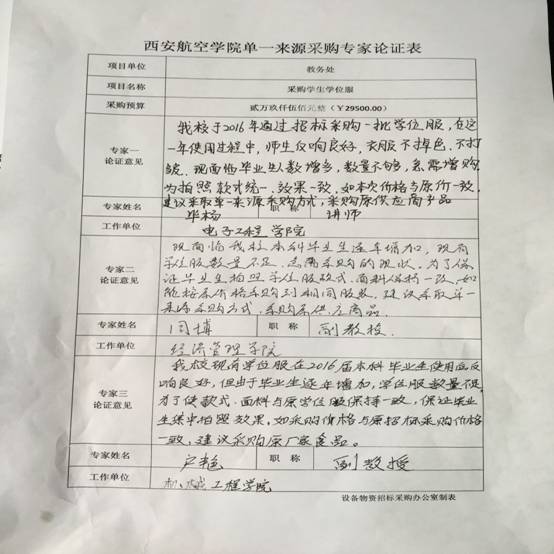 西安航空学院单一来源采购专家论证表
项目单位 教务处
项目名称 采购学生学位服
采购预算 贰万玖仟伍佰元整（￥29500.00）
我校于2016年通过招标采购一批学位服，在这
一年使用过程中，师生反响良好，衣服不掉色、不打
专家一 皱。现面临毕业生人数增多，数量不够，急需增购
论证意见 为拍照款式统一、效果一致，如本次价格与原价一致，
建议采取单一来源采购方式，采购原供应商产品
专家姓名 毕杨 职 称 讲师
工作单位 电子工程学院
现面临我校本科毕业生逐年增加，现有
学位服数量不足，急需采购的现状，为了保
专家二 证毕业生拍照学位服款式、面料保持一致，如
论证意见 能按原价格采购到相同服装，建议采取单一
来源采购方式，采购原供应商品。
专家姓名 闫博 职 称 副教授
工作单位 经济管理学院
我校现有学位服在2016届本科毕业生使用后反
响良好，但由于毕业生逐年增加，学位服数量不足，
专家三 为了使款式、面料与原学位服保持一致，保证毕业
论证意见 生集中拍照效果，如采购价格与原招标采购价格
一致，建议采购原厂家产品。
专家姓名 卢艳 职 称 副教授
工作单位 机械工程学院
设备物资招标采购办公室制表